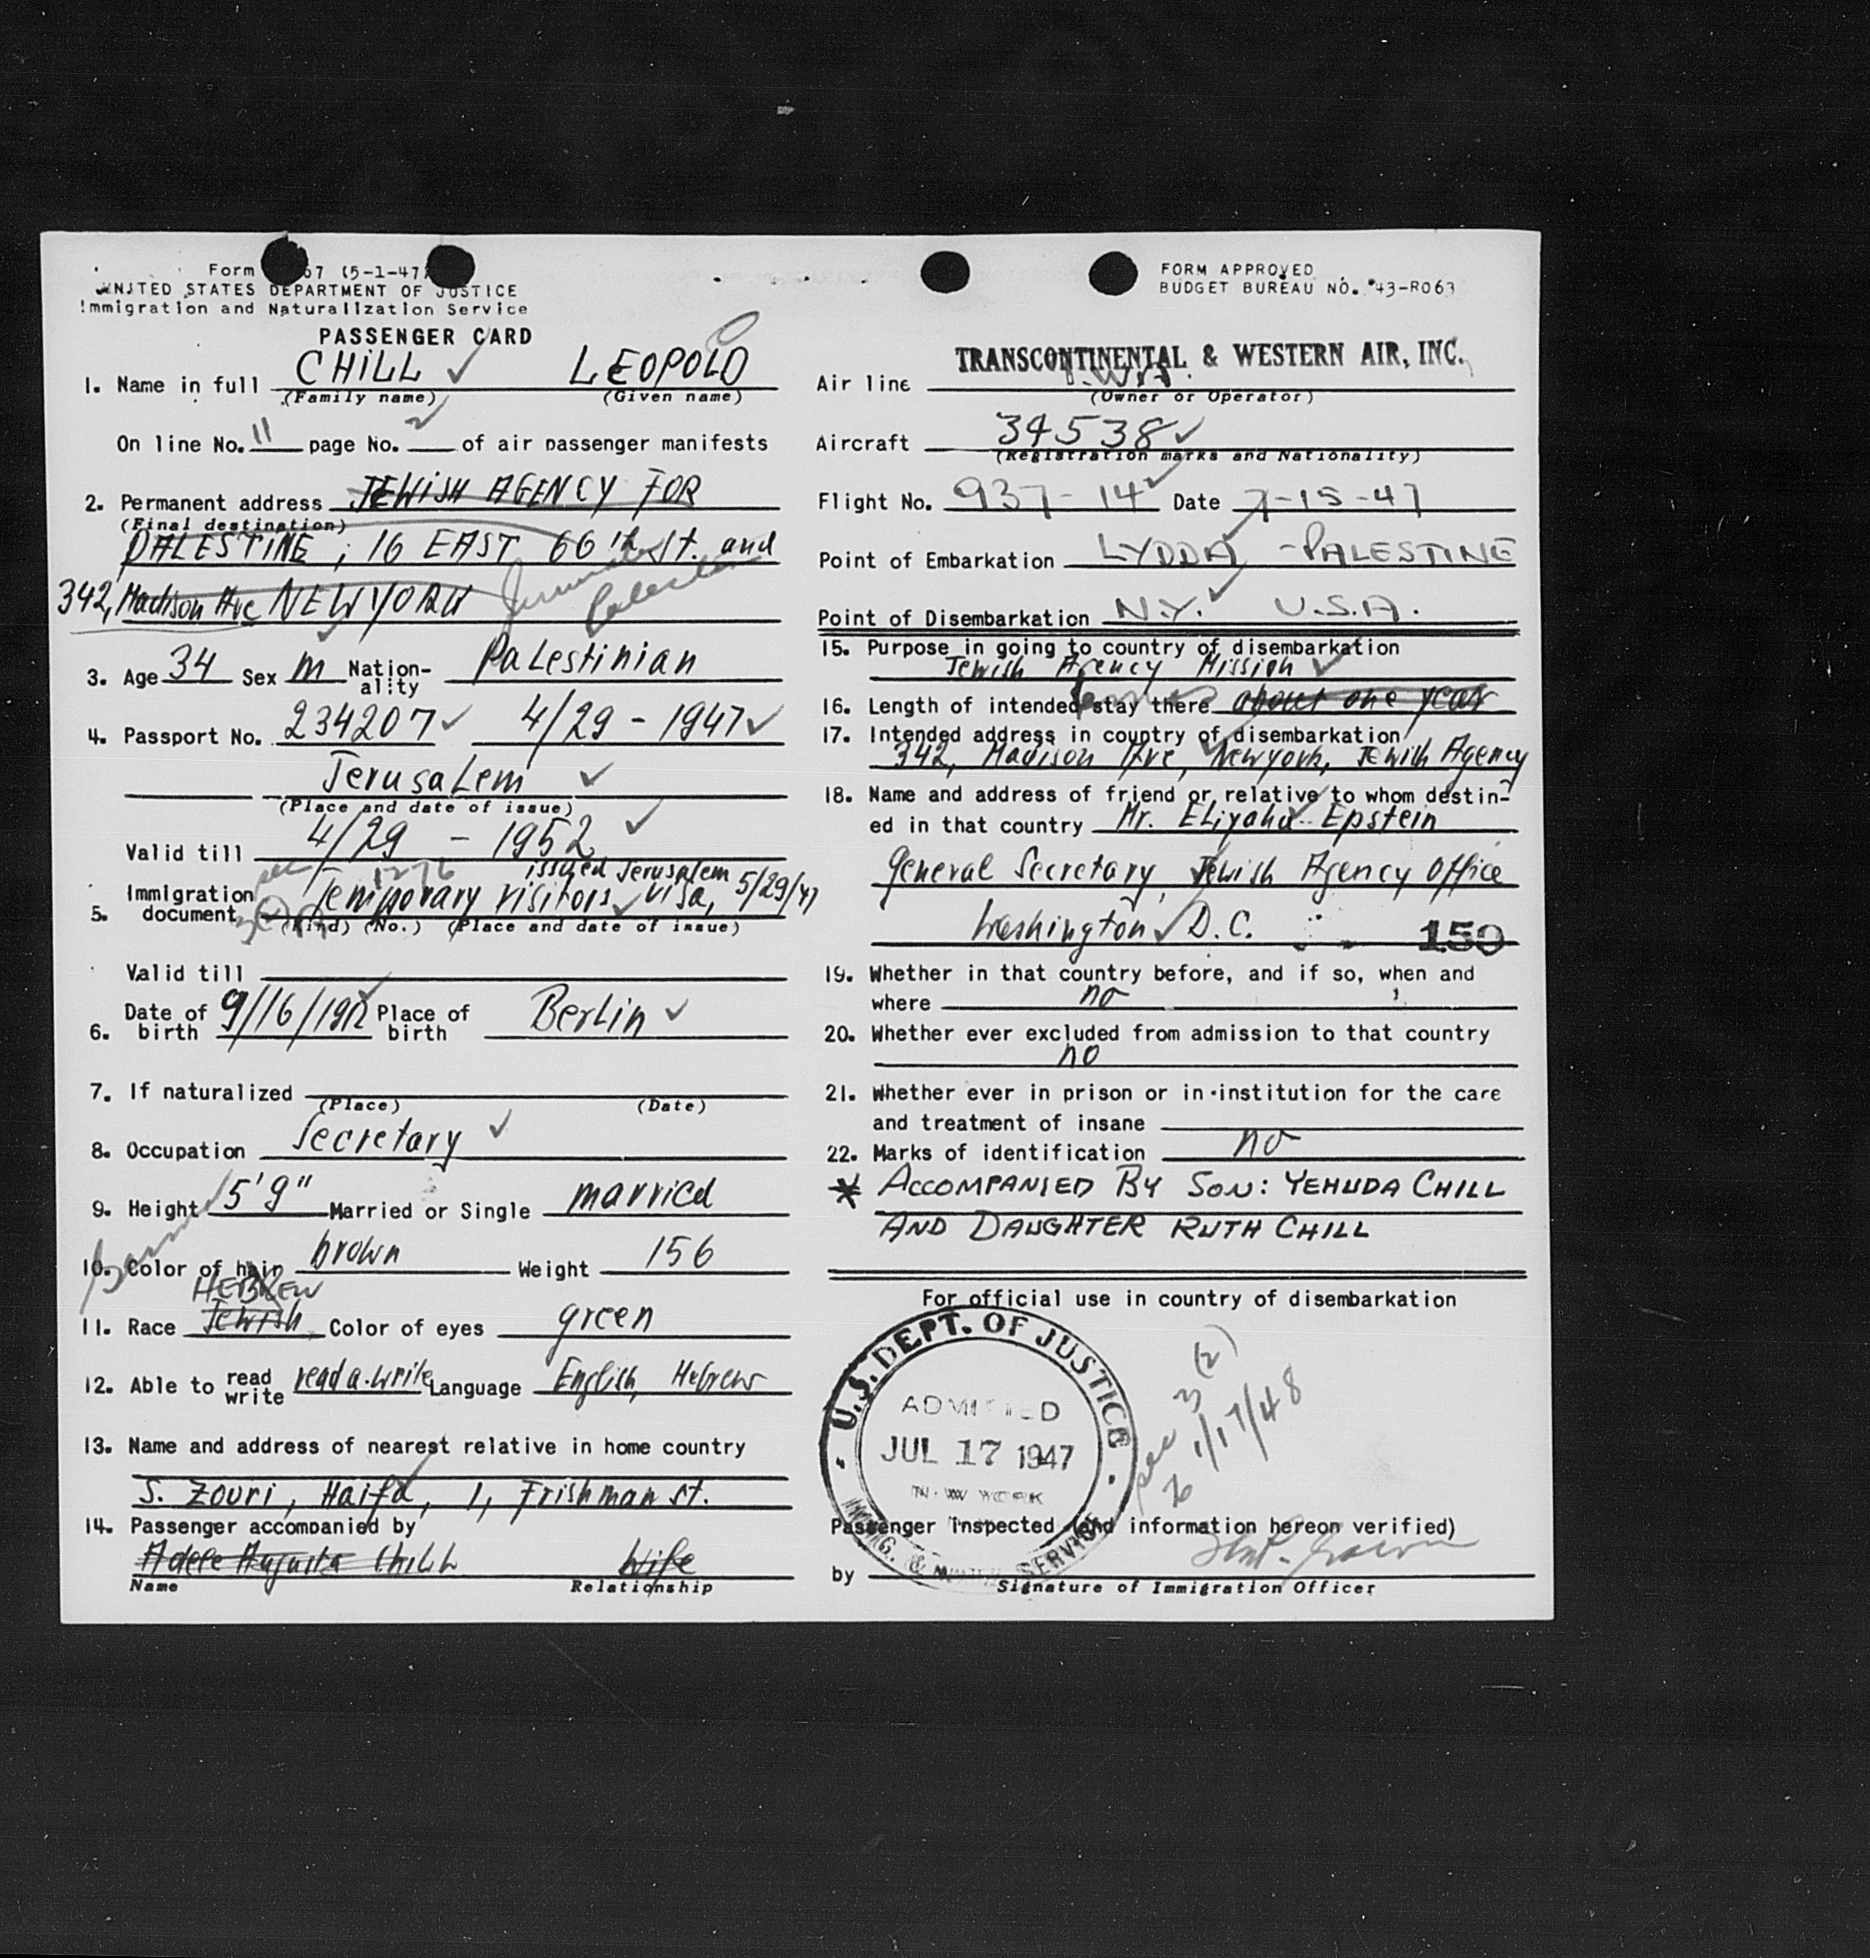 Form 67 (5-1-47)
UNITED STATES DEPARTMENT OF JUSTICE
Immigration and Naturalization Service
PASSENGER CARD
1. Name in full CHILL LEOPOLD
(Family name) (Given name)
On line No. 11 page No. 2 of air passenger manifests
2. Permanent address JEWISH AGENCY FOR
(Final destination)
PALESTINE, 16 EAST 66th St. and
342, Madison Ave NEWYORK
3. Age 34 Sex M Nationality Palestinian
4. Passport No. 234207 4/29 - 1947
Jerusalem
(Place and date of issue)
Valid till 4/29 - 1952
1276 issued Jerusalem
5. Immigration document Temporary visitors visa, 5/29/47
(Kind) (No.) (Place and date of issue)
Valid till
6. Date of birth 9/16/1912 Place of birth Berlin
7. If naturalized
(Place) (Date)
8. Occupation Secretary
9. Height 5'9" Married or Single married
10. Color of hair brown Weight 156
HEBREW
11. Race Jewish Color of eyes green
12. Able to read write read a. write Language English, Hebrew
13. Name and address of nearest relative in home country
S. Zouri, Haifa, 1, Frishman st.
14. Passenger accompanied by
Adele Augusta Chill Wife
Name Relationship
FORM APPROVED
BUDGET BUREAU NO. 43-R063
TRANSCONTINENTAL & WESTERN AIR, INC.
Air line T.W.A.
(Owner or Operator)
Aircraft 34538
(Registration marks and Nationality)
Flight No. 937-14 Date 7-15-47
Point of Embarkation LYDDA - PALESTINE
Point of Disembarkation N.Y. U.S.A.
15. Purpose in going to country of disembarkation
Jewish Agency Mission
16. Length of intended stay there about one year
17. Intended address in country of disembarkation
342, Madison Ave, Newyork, Jewish Agency
18. Name and address of friend or relative to whom destin-
ed in that country Mr. Eliyahu Epstein
General Secretary, Jewish Agency Office
Washington D.C. 150
19. Whether in that country before, and if so, when and
where no
20. Whether ever excluded from admission to that country
no
21. Whether ever in prison or in institution for the care
and treatment of insane
22. Marks of identification no
* ACCOMPANIED BY SON: YEHUDA CHILL
AND DAUGHTER RUTH CHILL
For official use in country of disembarkation
U.S. DEPT. OF JUSTICE
ADMITTED
JUL 17 1947
NEW YORK
IMMIG. & NATZ. SERVICE
3(2)
1/17/48
Passenger inspected (and information hereon verified)
by
Signature of Immigration Officer